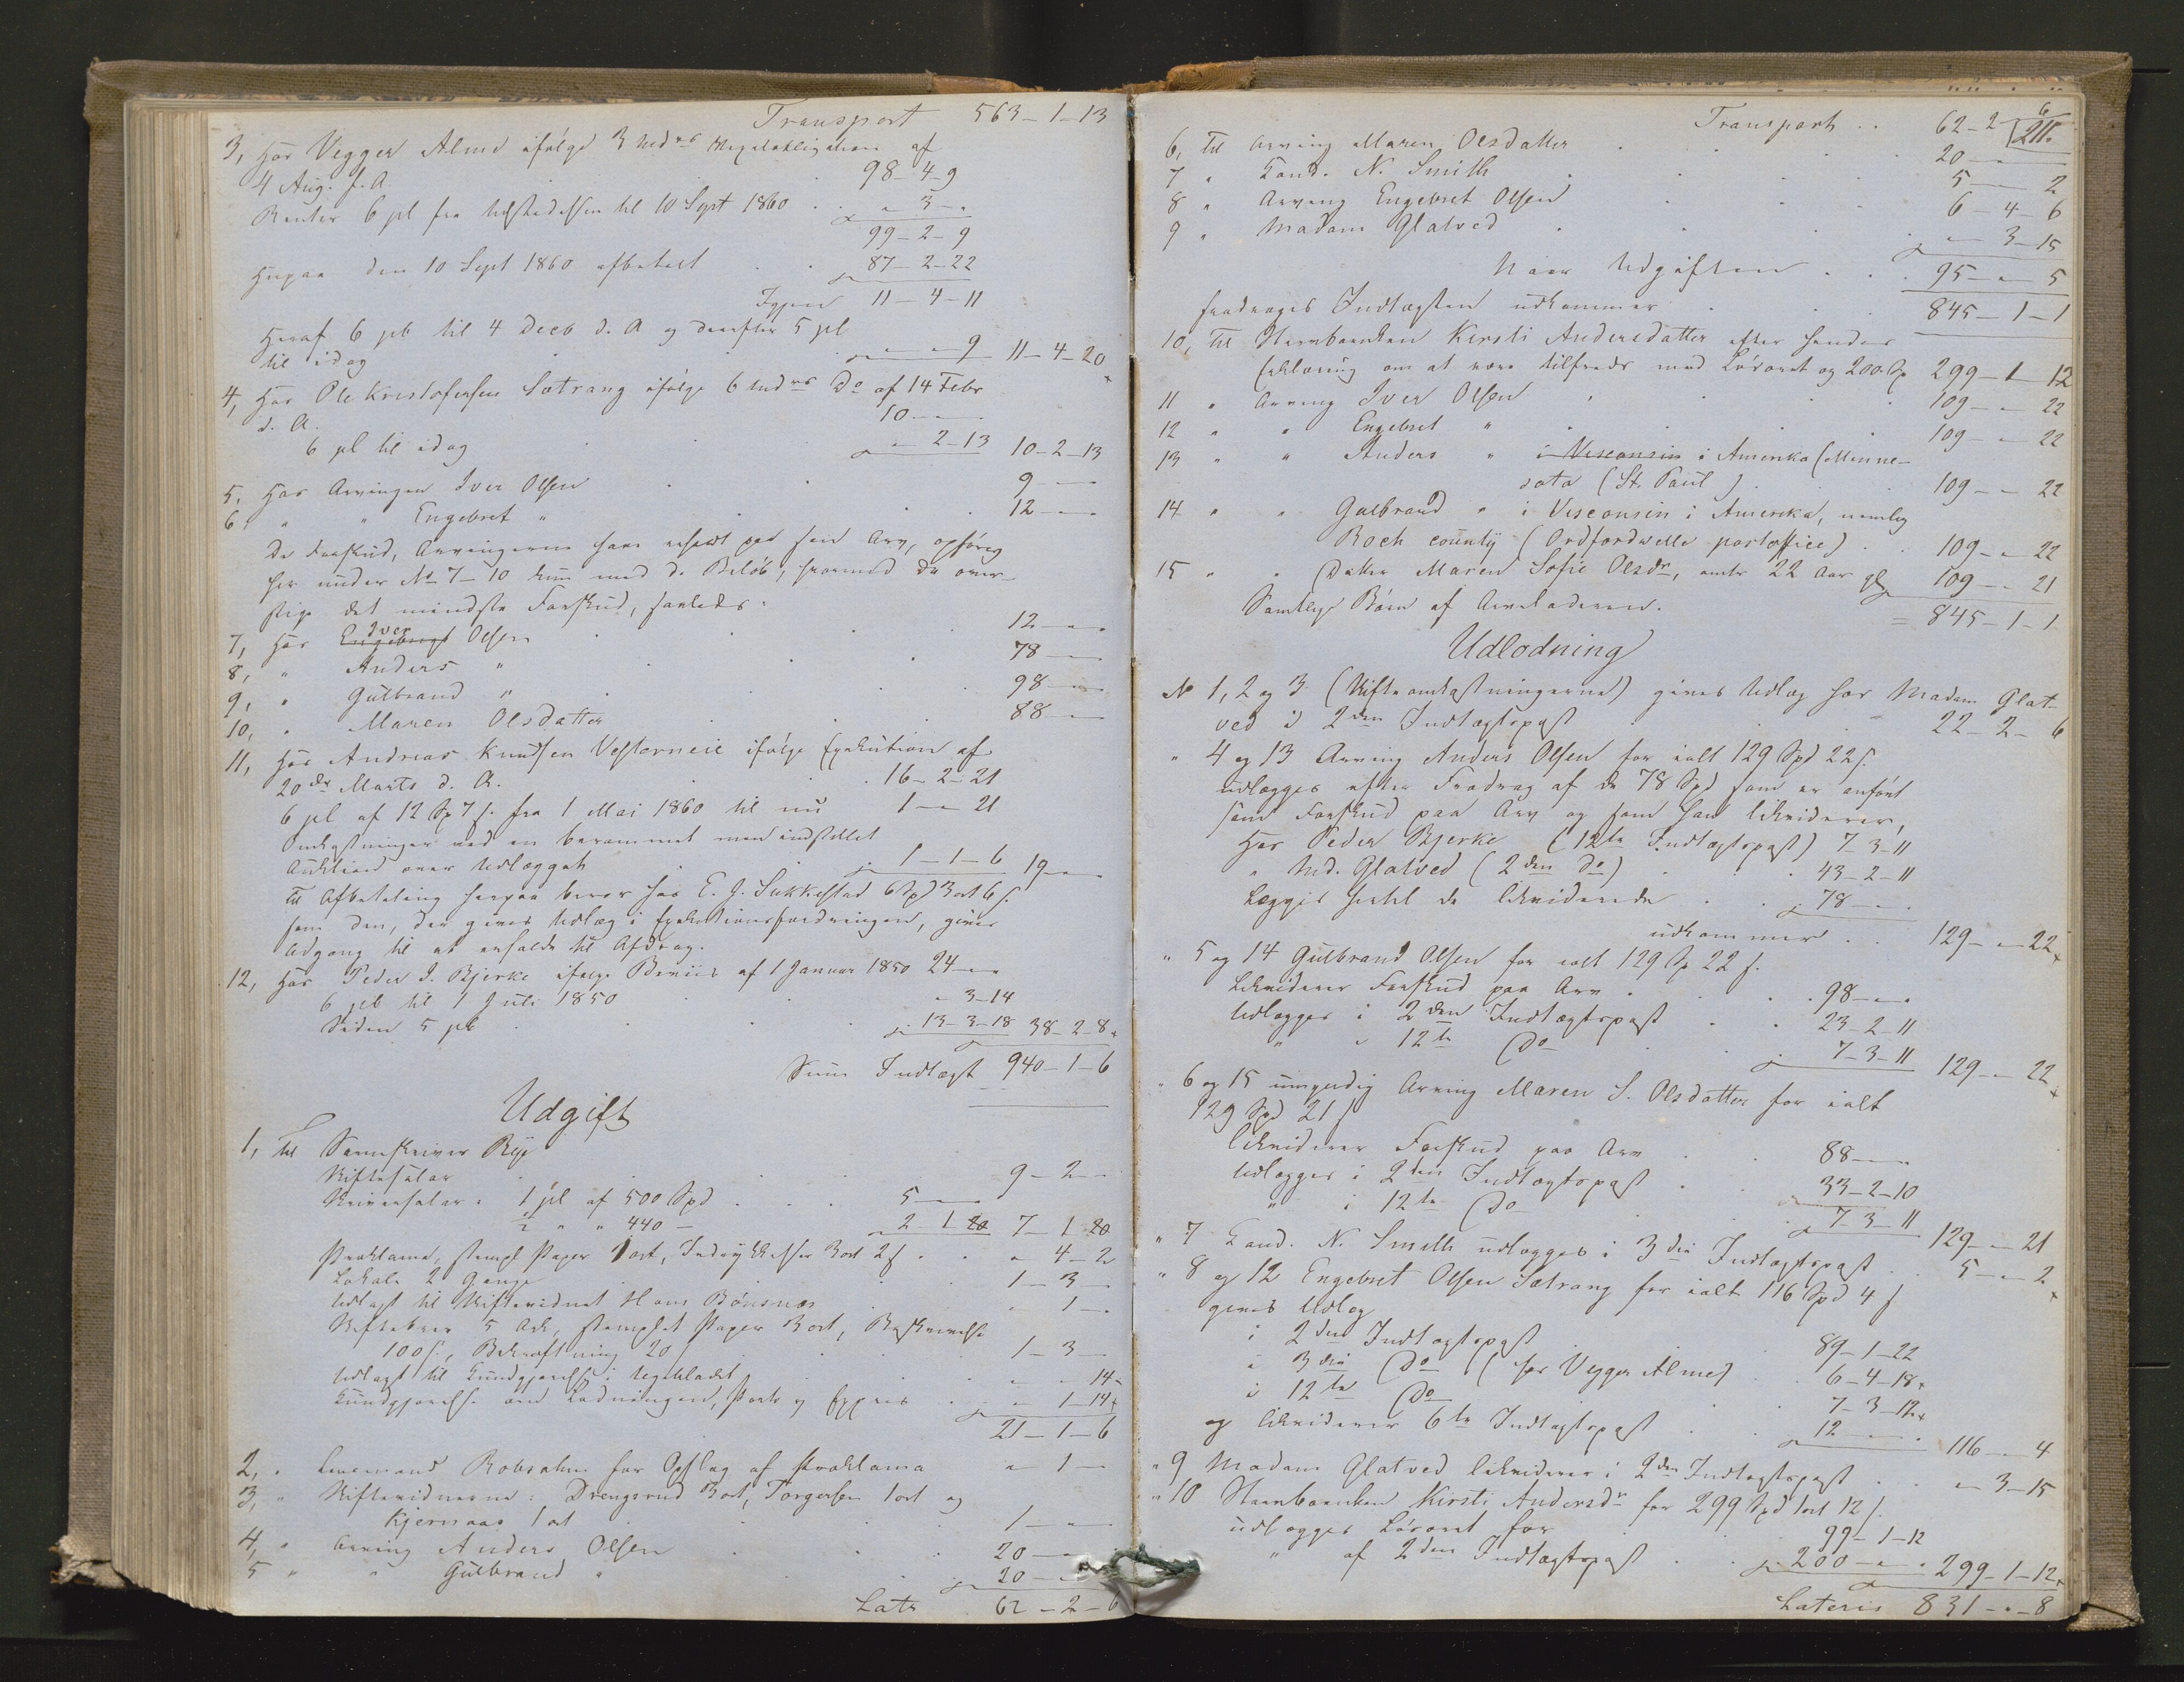 Transport 563-1-13
3, Hos Vegger Alme ifølge 3 Mdrs Vexelobligation af
4 Aug. f. A. 98-4-9
Renter 6 pCt fra Udstedelsen til 10 Sept 1860 . . " 3 "
99-2-9
Herpaa den 10 Sept 1860 afbetalt 87-2-22
Igjen 11-4-11
Heraf 6 pCt til 4 Decb d. A og derefter 5 pCt
til idag " " 9 11-4-20
4, Hos Ole Kristofersen Sætrang ifølge 6 Mdrs Do af 14 Febr
d. A. 10 " "
6 pCt til idag " 2-13 10-2-13
5, Hos Arvingen Iver Olsen 9 " "
6, " " Engebret " 12 " "
De Forskud, Arvingerne have erholdt paa sin Arv, opføres
her under No 7-10 kun med de Beløb, hvormed de over-
stige det mindste Forskud, saaledes:
7, Hos Engebregt Iver Olsen 12 " "
8, " Anders " 78 " "
9, " Gulbrand " 98 " "
10, " Maren Olsdatter 88 " "
11, Hos Andreas Knudsen Vesterneie ifølge Exekution af
20de Marts d. A. 16-2-21
6 pCt af 12 Sp 7 s. fra 1 Mai 1860 til nu 1 " 21
Omkostninger ved en berammet men indstillet
Auktion over Udlægget 1-1-6 19 " "
Til Afbetaling herpaa beror hos E. J. Sukkestad 6 Spd 3 ort 6 s.
som den, der gives Udlæg i Exekutionsfordringen, gives
Adgang til at erholde til Afdrag.
12, Hos Peder J. Bjerke ifølge Beviis af 1 Januar 1850 24 " "
6 pCt til 1 Juli 1850 " 3-14
Siden 5 pCt 13-3-18 38-2-8
Sum Indtægt 940-1-6
Udgift
1, Til Sorenskriver Bye
Skiftesalar 9-2 "
Skriversalar: 1 pCt af 500 Spd 5 " "
½ " " 440 - 2 1 20 7-1-20
Proklama, stempl. Papir 1 ort, Indrykkelse 3 ort 2 s " 4-2
Lokale 2 Gange 1-3 "
Udlagt til Skiftevidnet Hans Bønsnæs " 1 "
Skiftebrev 5 Ark, stemplet Papir 3 ort, Beskrivelse
100 s., Bekræftning 20 s 1-3 "
Udlagt til Kundgjørelse i Ugebladet " " 14
Kundgjørelse om Lodningen, Porto og Expres " 1-14
21-1-6
2, " Lensmand Robsahm for Opslag af Proklama " 1 "
3, " Skiftevidnerne: Drengsrud 3 ort, Torgersen 1 ort og
Kjernaas 1 ort 1 " "
4, " Arving Anders Olsen 20 " "
5 " " Gulbrand " 20 " "
Lats 62-2-6
Transport .. 62-2-6
211.
6, Til Arving Maren Olsdatter 20 " "
7 " Kand. N. Smith 5 " 2
8 " Arving Engebret Olsen 6-4-6
9 " Madam Glatved " 3-15
Naar Udgiften 95 " 5
fradrages Indtægten udkommer 845-1-1
10, Til Stervboenken Kersti Andersdatter efter hendes
Erklæring om at være tilfreds med Løsøret og 200 Sp 299-1-12
11 " Arving Iver Olsen 109 " 22
12 " " Engebret " 109 " 22
13 " " Anders " i Visconsin i Amerika (Minne-
sota (St. Paul) 109 " 22
14 " " Gulbrand " i Visconsin i Amerika, nemlig
Roch county (Ordfordwelle postoffice) 109 " 22
15 " " Datter Maren Sofie Olsdr, omtr 22 Aar gl. 109 " 21
Samtlige Børn af Arveladeren. = 845-1-1
Udlodning
No 1, 2 og 3 (Skifteomkostningerne) gives Udlæg hos Madam Glat-
ved i 2den Indtægtspost 22-2-6
" 4 og 13 Arving Anders Olsen for ialt 129 Spd 22 s.
udlægges efter Fradrag af de 78 Spd som er anført
som Forskud paa Arv og som han likviderer,
Hos Peder Bjerke (12te Indtægtspost) 7-3-11
" Md. Glatved (2den Do) 43-2-11
Lægges hertil de likviderede 78 " "
udkommer 129 " 22
" 5 og 14 Gulbrand Olsen for ialt 129 Sp 22 s.
Likviderer Forskud paa Arv 98 " "
Udlægges i 2den Indtægtspost 23-2-11
" i 12te Do 7-3-11 129 " 22
" 6 og 15 umyndig Arving Maren S. Olsdatter for ialt
129 Spd 21 s
likviderer Forskud paa Arv 88 " "
Udlægges i 2den Indtægtspost 33-2-10
" i 12te Do 7-3-11 129 " 21
" 7 Kand. N. Smith udlægges i 3die Indtægtspost 5 " 2
" 8 og 12 Engebret Olsen Sætrang for ialt 116 Spd 4 s
gives Udlæg
i 2den Indtægtspost 89-1-22
i 3die Do (hos Vegger Alme) 6-4-18
i 12te Do 7-3-12
og likviderer 6te Indtægtspost 12 " " 116 " 4
" 9 Madam Glatved likviderer i 2den Indtægtspost " 3-15
" 10 Stervboenken Kirsti Andersdr for 299 Spd 1 ort 12 s.
udlægges Løsøret for 99-1-12
" af 2den Indtægtspost 200 " " 299-1-12
Lateris 831 " 8